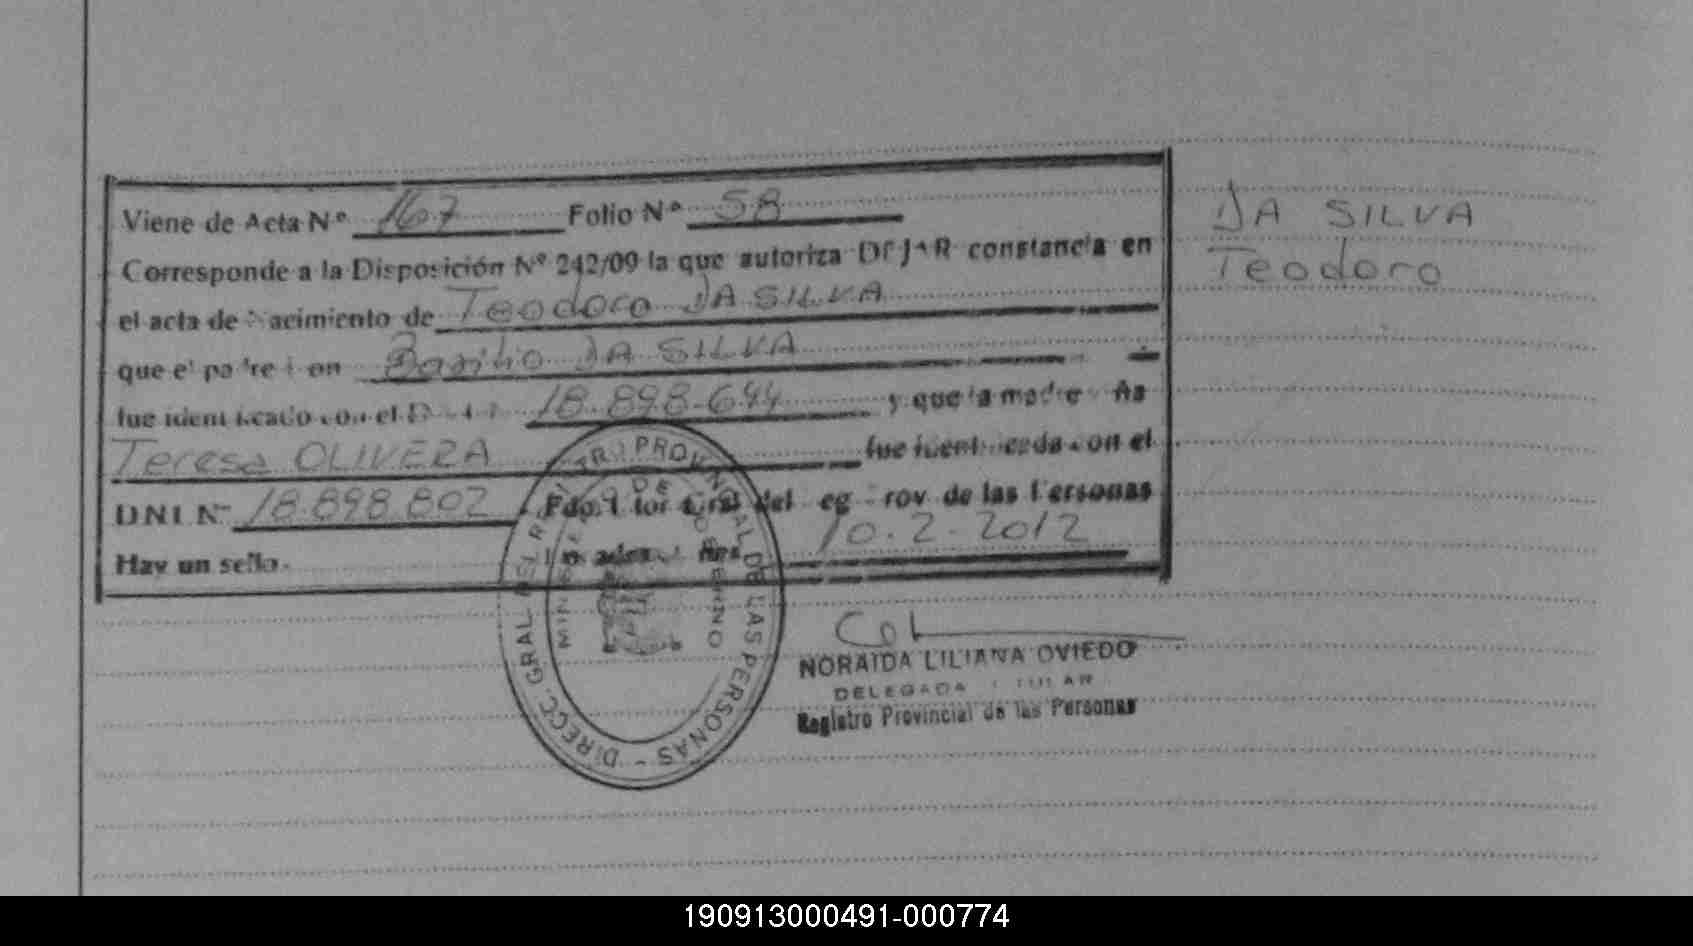 Viene de Acta Nº 167 Folio Nº 58
Corresponde a la Disposición Nº 242/09 la que autoriza DEJAR constancia en
el acta de Nacimiento de Teodoro DA SILVA
que el padre Don Basilio DA SILVA
fue identificado con el D 18.898.644 y que la madre Ña
Teresa OLIVERA fue identificada con el
DNI Nº 18.898.802 Fdo. Gral del Reg Prov de las Personas
Hay un sello. 10.2.2012
DA SILVA
Teodoro
DIRECC. GRAL DEL REGISTRO PROVINCIAL DE LAS PERSONAS -
MINISTERIO DE GOBIERNO
NORAIDA LILIANA OVIEDO
DELEGADA TITULAR
Registro Provincial de las Personas
190913000491-000774